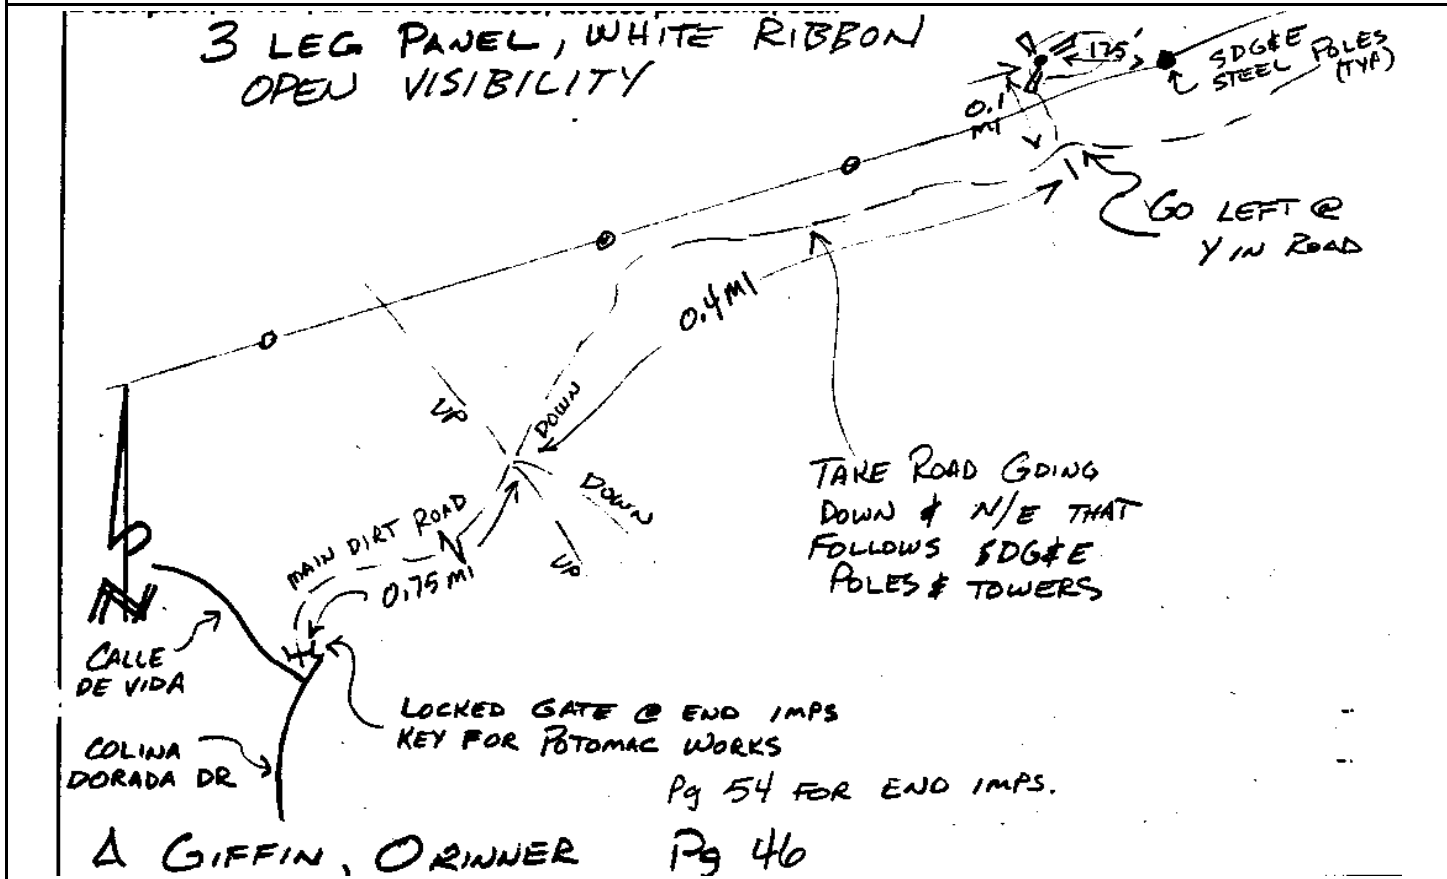 3 LEG PANEL, WHITE RIBBON
OPEN VISIBILITY
175'
SDG&E
STEEL POLES
(TYP)
0.1
MI
GO LEFT @
Y IN ROAD
0.4 MI
UP
DOWN
DOWN
UP
TAKE ROAD GOING
DOWN & N/E THAT
FOLLOWS SDG&E
POLES & TOWERS
MAIN DIRT ROAD
0.75 MI
N
CALLE
DE VIDA
LOCKED GATE @ END IMPS
KEY FOR POTOMAC WORKS
COLINA
DORADA DR
Pg 54 FOR END IMPS.
Δ GIFFIN, O RINNER Pg 46